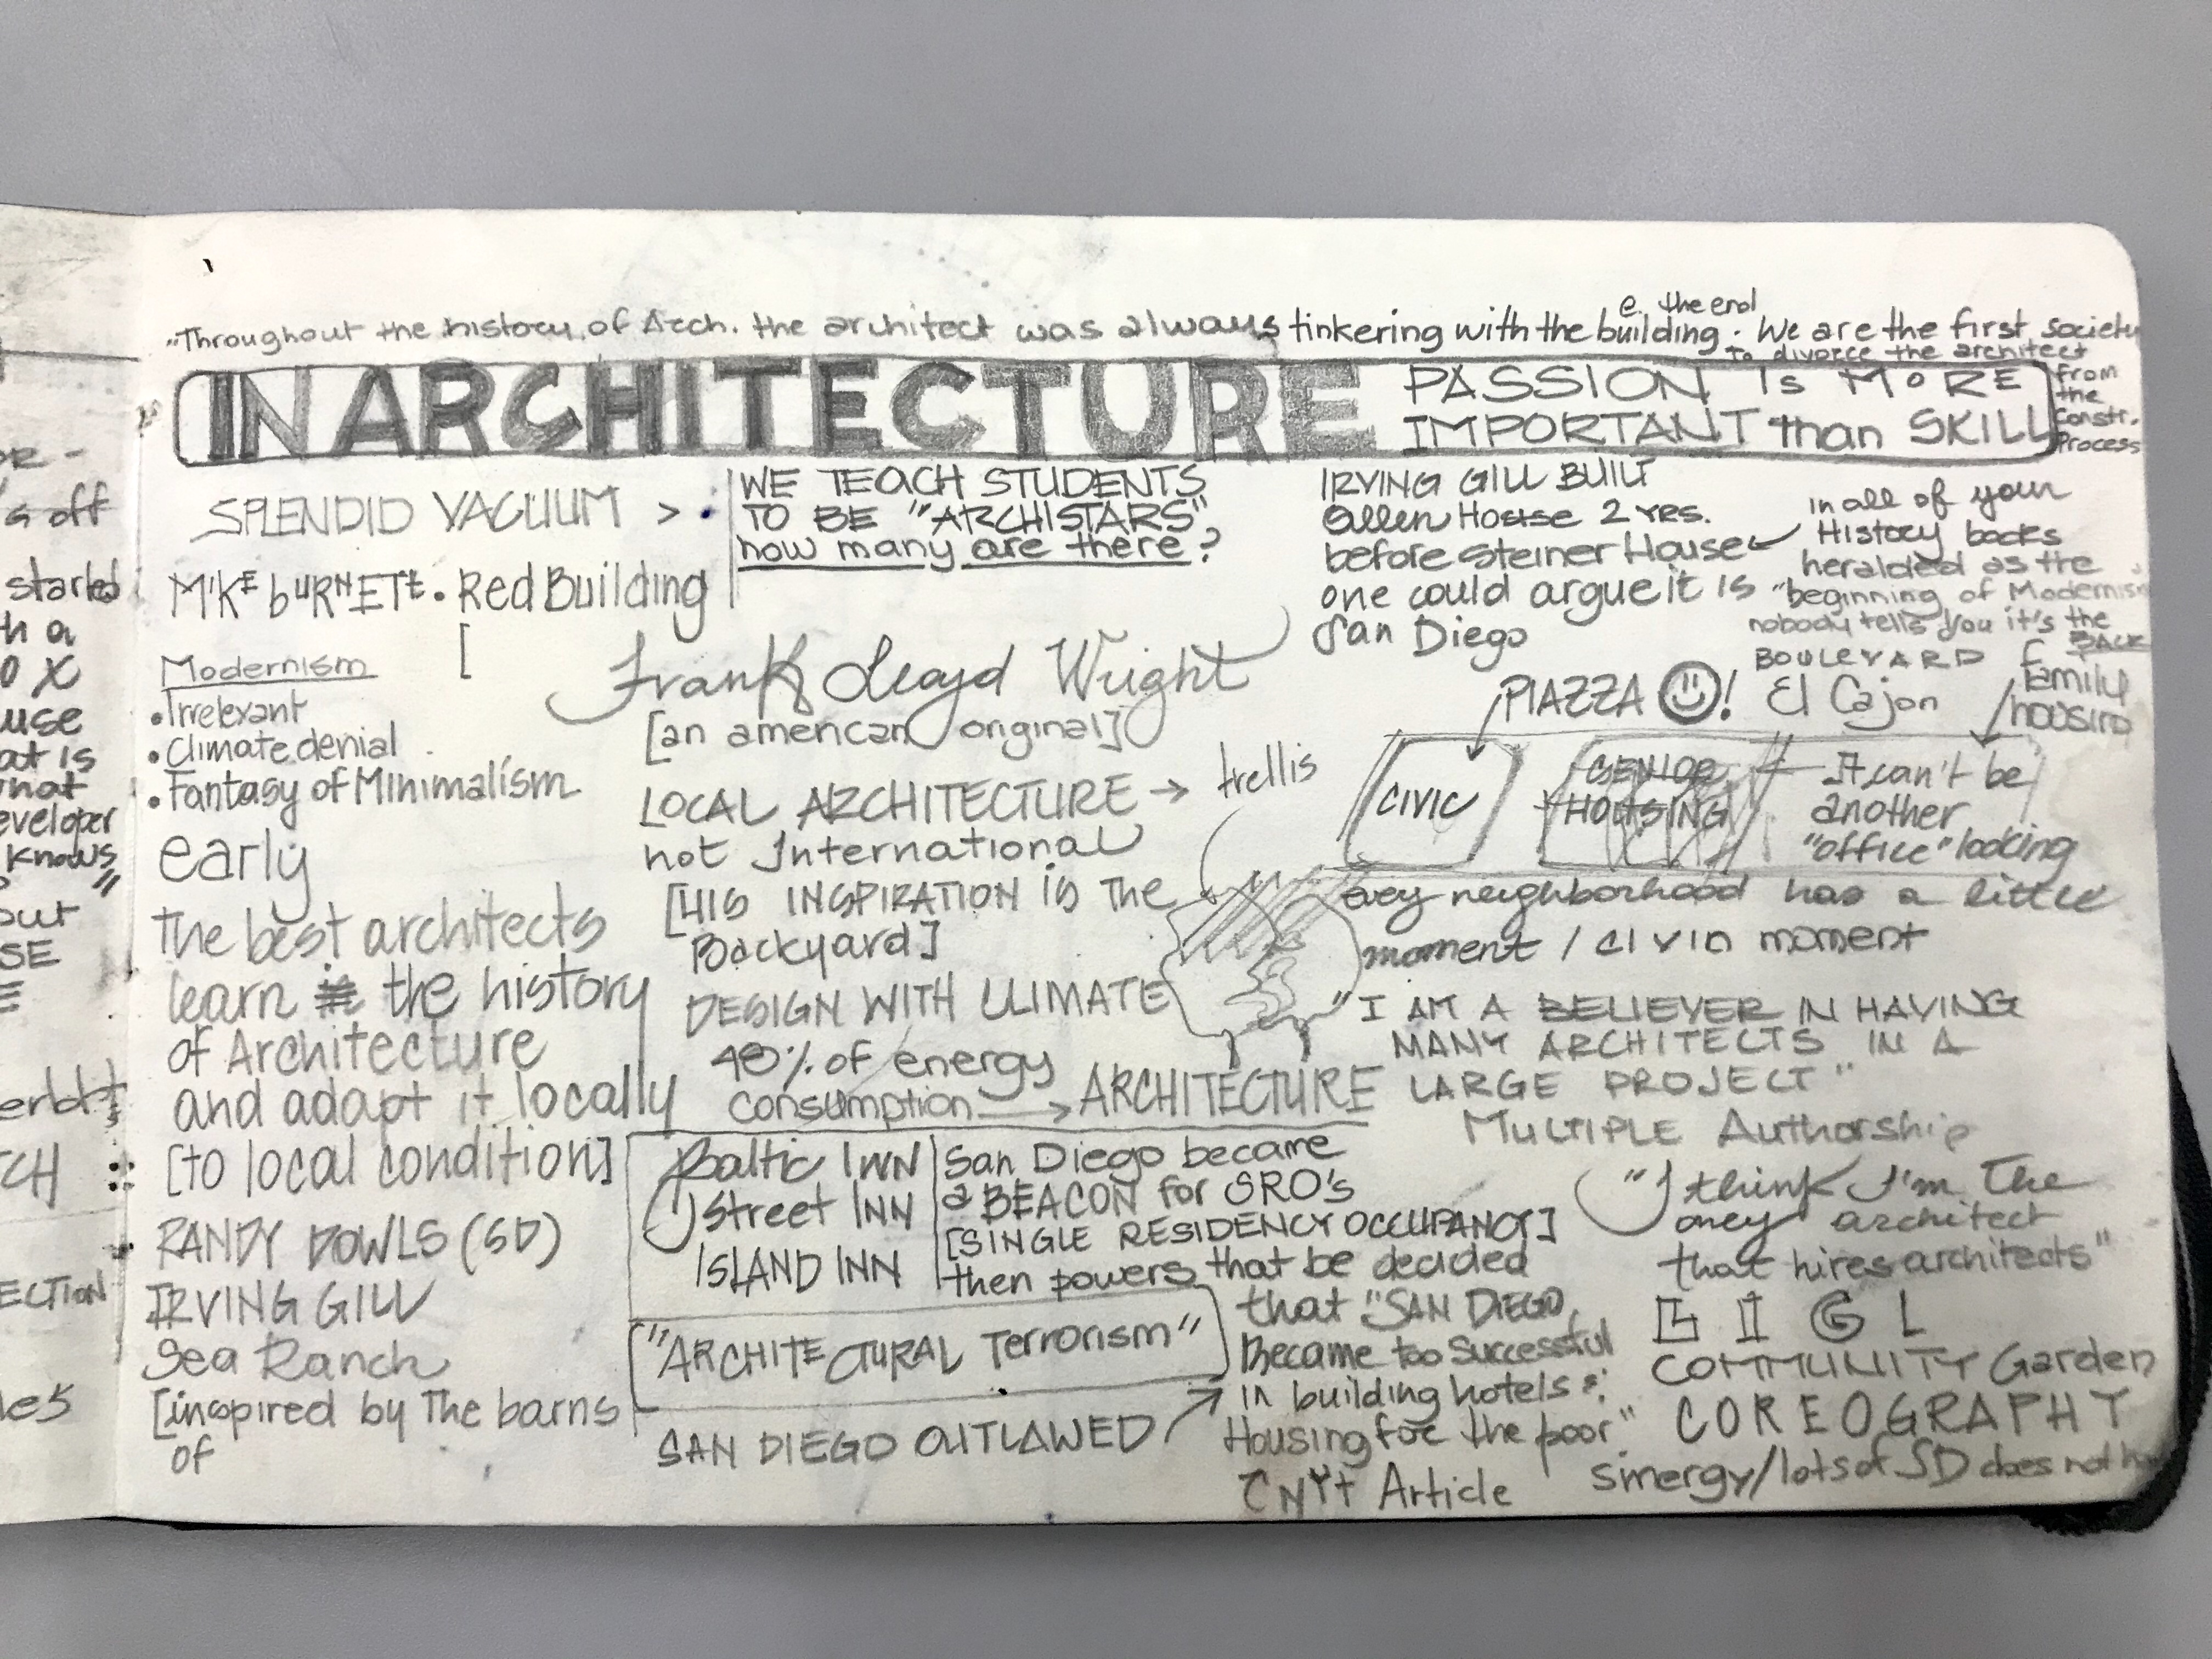 "Throughout the history of Arch. the architect was always tinkering with the building. We are the first society
e. the end
to divorce the architect
from
the
Constr.
Process
IN ARCHITECTURE
PASSION Is MoRE
IMPORTANT than SKILL
SPLENDID VACUUM >
WE TEACH STUDENTS
TO BE "ARCHISTARS"
how many are there?
MIKE bURNETt • Red Building
[
Modernism
• Irrelevant
• Climate denial
• Fantasy of Minimalism
early
The best architects
learn the history
of Architecture
and adapt it locally
[to local condition]
RANDY DOWLS (SD)
IRVING GILL
Sea Ranch
[inspired by The barns
of
Frank Lloyd Wright
[an american original]
LOCAL ARCHITECTURE → trellis
not International
[HIS INSPIRATION is The
Backyard]
DESIGN WITH CLIMATE
48% of energy
consumption → ARCHITECTURE
Baltic INN
J Street INN
ISLAND INN
San Diego became
a BEACON for SRO's
[SINGLE RESIDENCY OCCUPANCY]
then powers that be decided
that "SAN DIEGO
Became too Successful
in building hotels &
Housing for the poor"
NYt Article
"ARCHITECTURAL Terrorism"
SAN DIEGO OUTLAWED
IRVING GILL BUILT
Allen House 2 yrs.
before Steiner House
one could argue it is
San Diego
in all of your
History books
heralded as the
"beginning of Modernism
nobody tells you it's the
BACK
BOULEVARD
El Cajon
family
housing
PIAZZA !
CIVIC
SENIOR
HOUSING
It can't be
another
"office" looking
every neighborhood has a little
moment / civin moment
"I AM A BELIEVER IN HAVING
MANY ARCHITECTS IN A
LARGE PROJECT"
MULTIPLE Authorship
"I think I'm The
oney architect
that hires architects"
G I G L
COMMUNITY Garden
COREOGRAPHY
sinergy/lots of SD does not
off
started
h a
O X
use
at is
what
eveloper
knows
"
out
SE
E
CH
ECTION
les